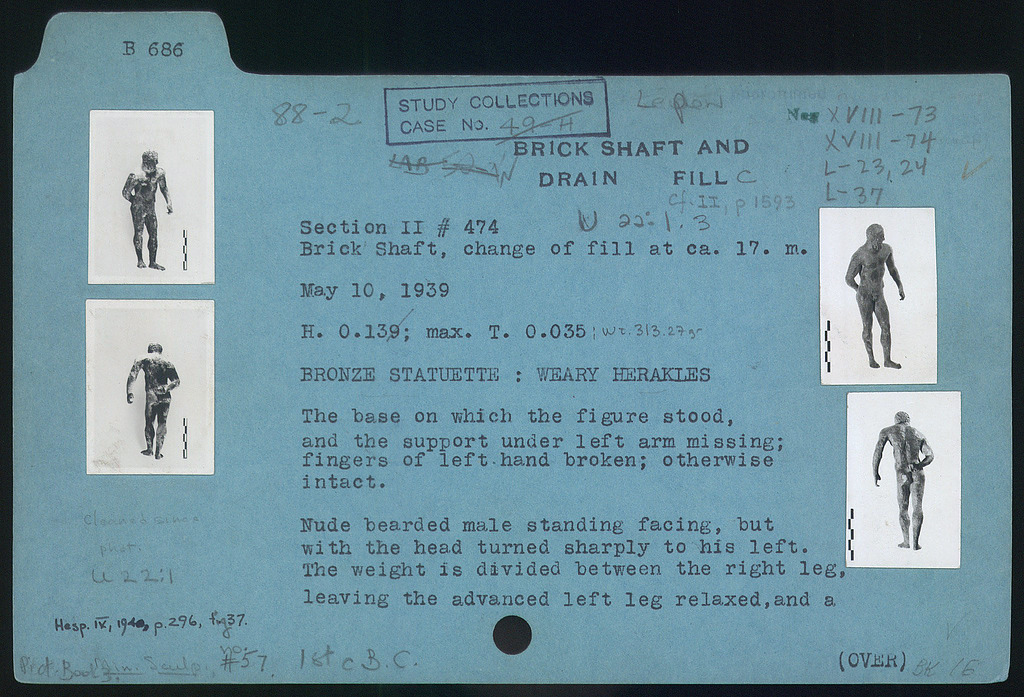 B 686
88-2
STUDY COLLECTIONS
CASE No. 49-H
BRICK SHAFT AND
DRAIN FILL C
Cf. II, p 1593
U 22:1.3
Neg XVIII - 73
XVIII - 74
L-23, 24
L-37
Section II # 474
Brick Shaft, change of fill at ca. 17. m.
May 10, 1939
H. 0.139; max. T. 0.035; wt. 313.27gr
BRONZE STATUETTE : WEARY HERAKLES
The base on which the figure stood,
and the support under left arm missing;
fingers of left hand broken; otherwise
intact.
Nude bearded male standing facing, but
with the head turned sharply to his left.
The weight is divided between the right leg,
leaving the advanced left leg relaxed, and a
Cleaned since
phot.
U 22:1
Hesp. IX, 1940, p. 296, fig 37.
Pict. Book Min. Sculp. no. #57
1st c B.C.
(OVER)